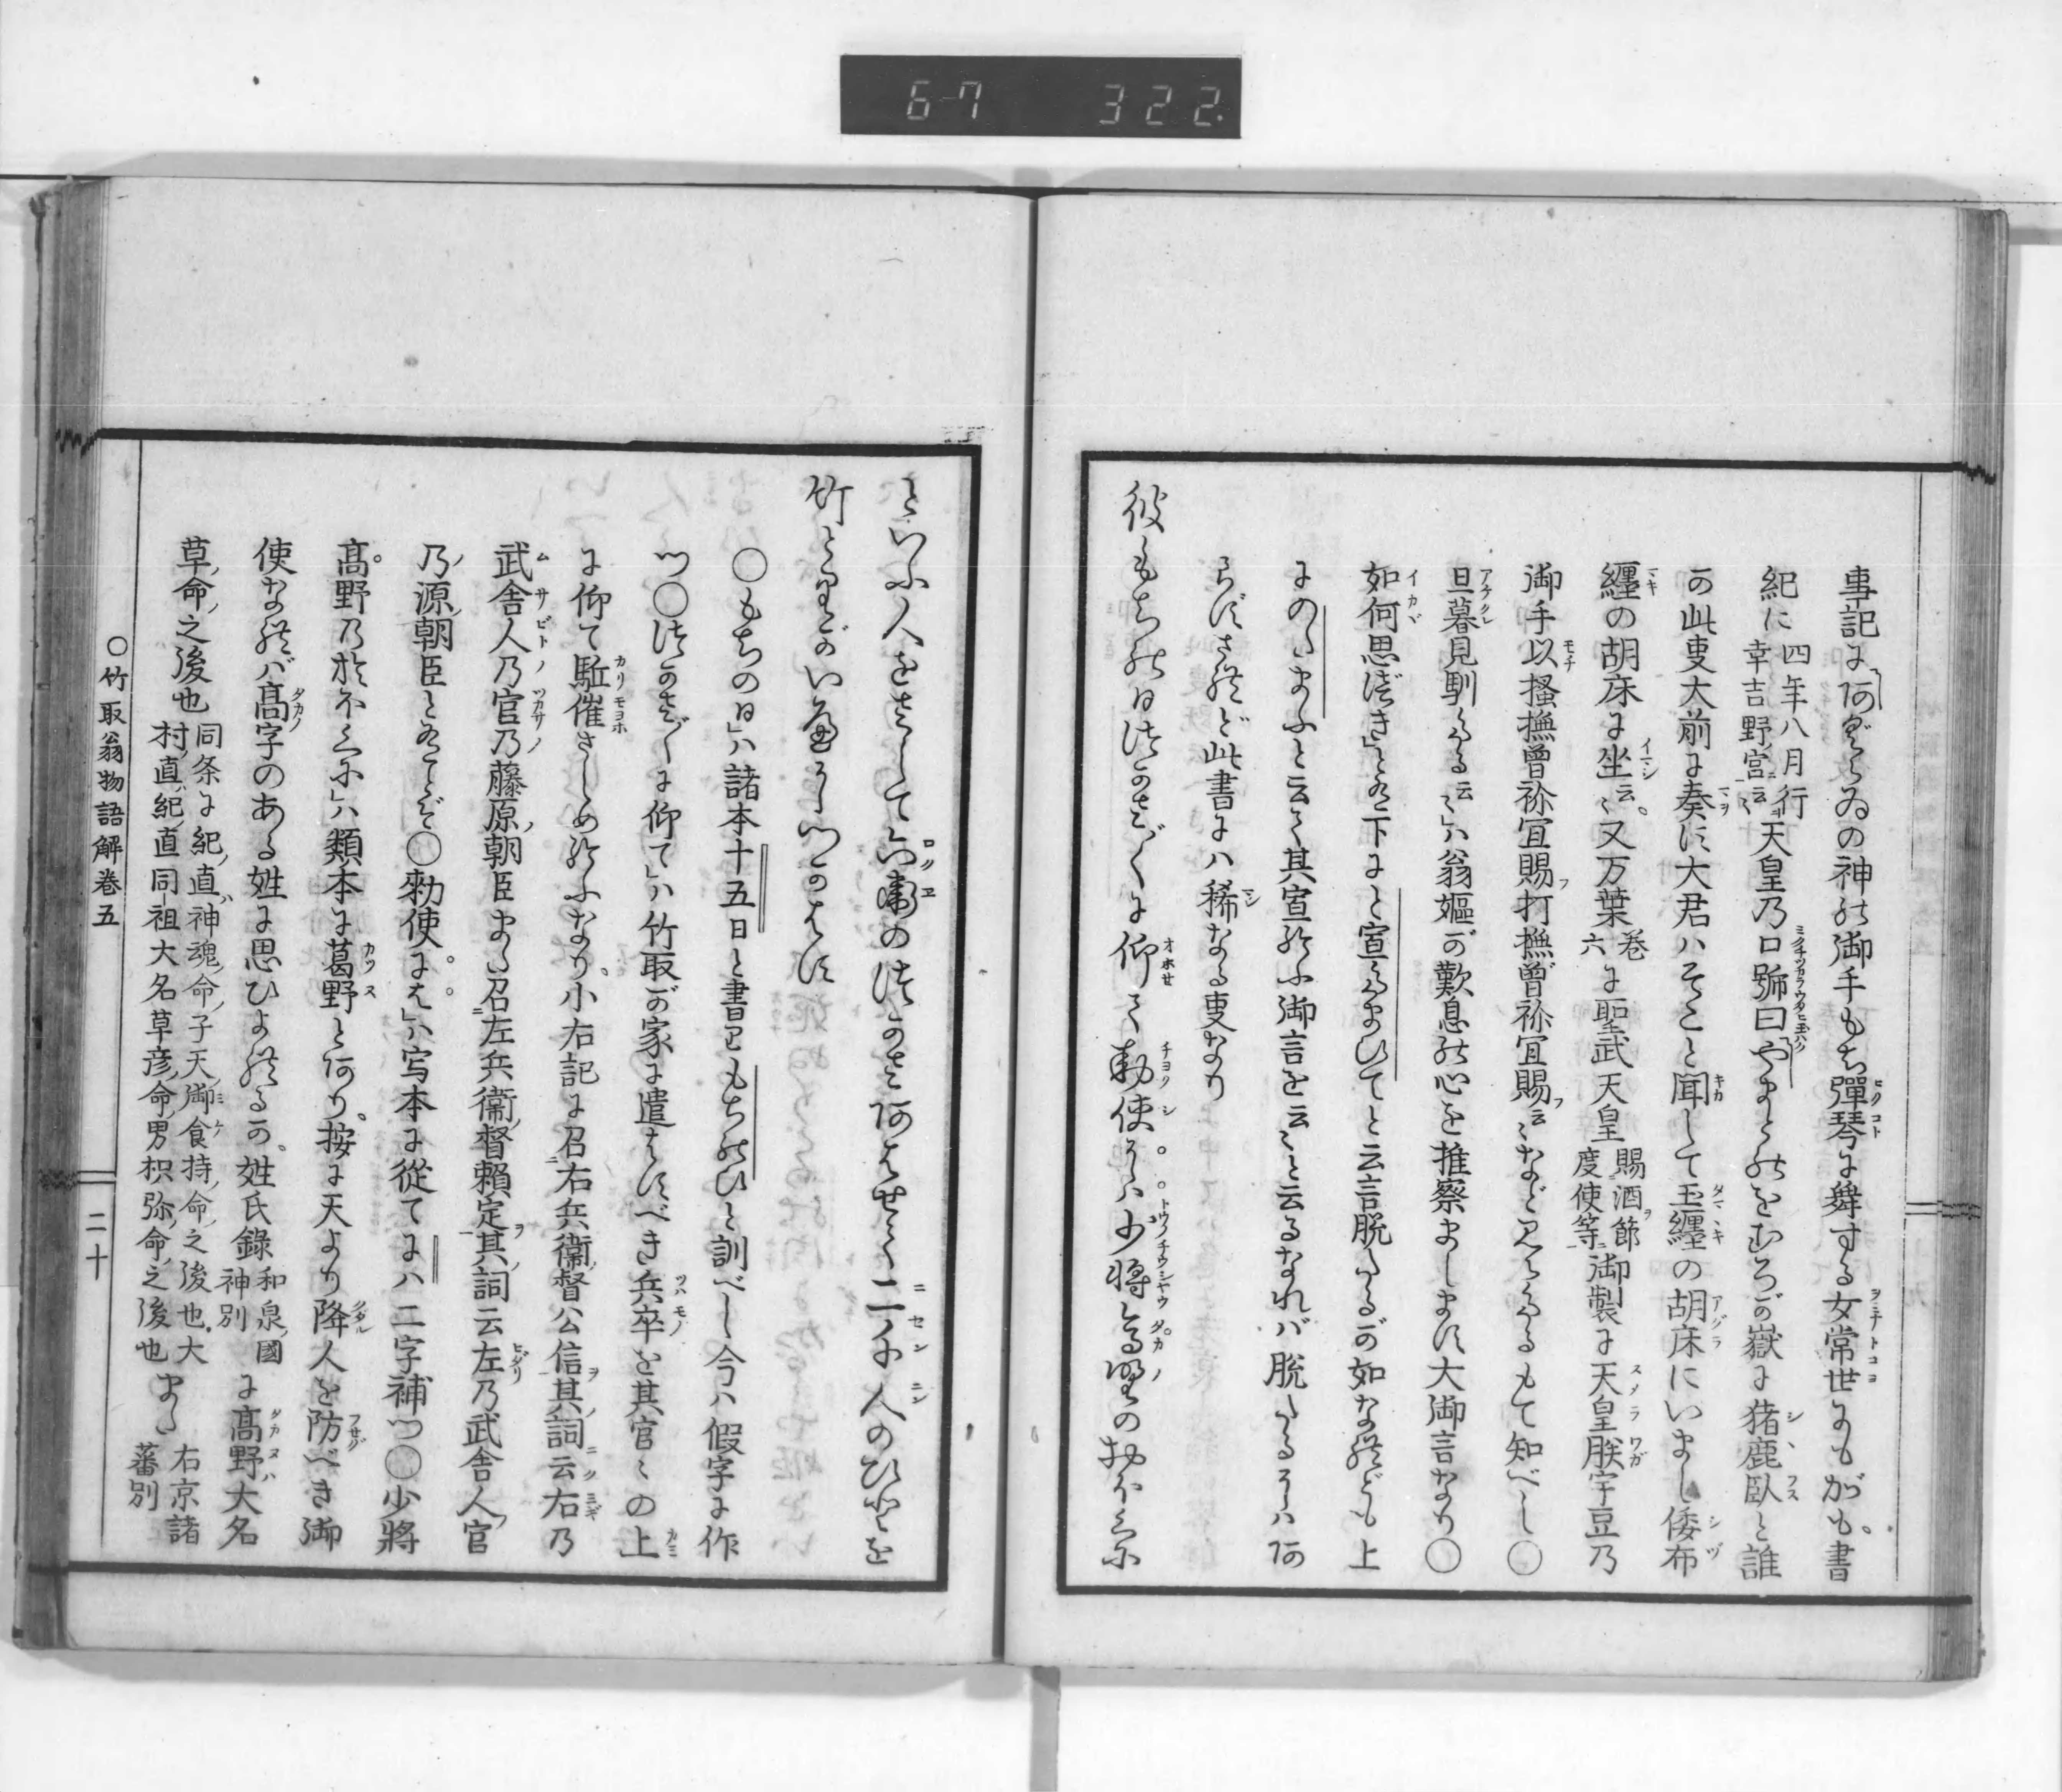 67 322
事記にあぐらゐの神の御手もち彈琴に舞する女常世にもがも書
紀に四年八月行幸吉野宮云〻天皇乃口號曰やまとのをむらが嶽に猪鹿臥と誰
か此事大前に奏に大君ハそこと聞して玉纏の胡床にいまし倭布
纏の胡床に坐云〻又万葉巻六に聖武天皇賜酒節度使等御製に天皇朕宇豆乃
御手以掻撫曾祢宜賜打撫曾祢宜賜云〻など見えたるもて知べし〇
旦暮見馴たる云〻ハ翁嫗が歎息の心を推察まします大御言なり〇
如何思べきとハ下にと宣たまひてと云言脱たるが如なれども上
にのたまふと云て其宣給ふ御言を云〻と云るなれバ脱たるにハあ
らじされど此書にハ稀なる事なり
彼もちの日つかさ〴〵に仰て勅使にハ少將高野のおほくに
といふ人をさして六衛のつかさあはせて二千人のひとを
竹とりがいへにつかはす
〇もちの日ハ諸本十五日と書りもちのひと訓べし今ハ假字に作
つ〇つかさ〴〵に仰てハ竹取が家に遣はすべき兵卒を其官〻の上
に仰て駈催さしめ給ふなり小右記に召右兵衞督公信其詞云右乃
武舎人乃官乃藤原朝臣また召左兵衞督頼定其詞云左乃武舎人官
乃源朝臣とあるぞ〇勅使にはハ写本に從てにハ二字補つ〇少將
高野乃於ほくにハ類本に葛野とあり按に天より降人を防べき御
使なれバ高字のある姓に思ひよれるか姓氏錄和泉國神別に高野大名
草命之後也同条に紀直神魂命子天御食持命之後也大村直紀直同祖大名草彦命男枳弥命之後也また右京諸蕃別
〇竹取翁物語解卷五
二十